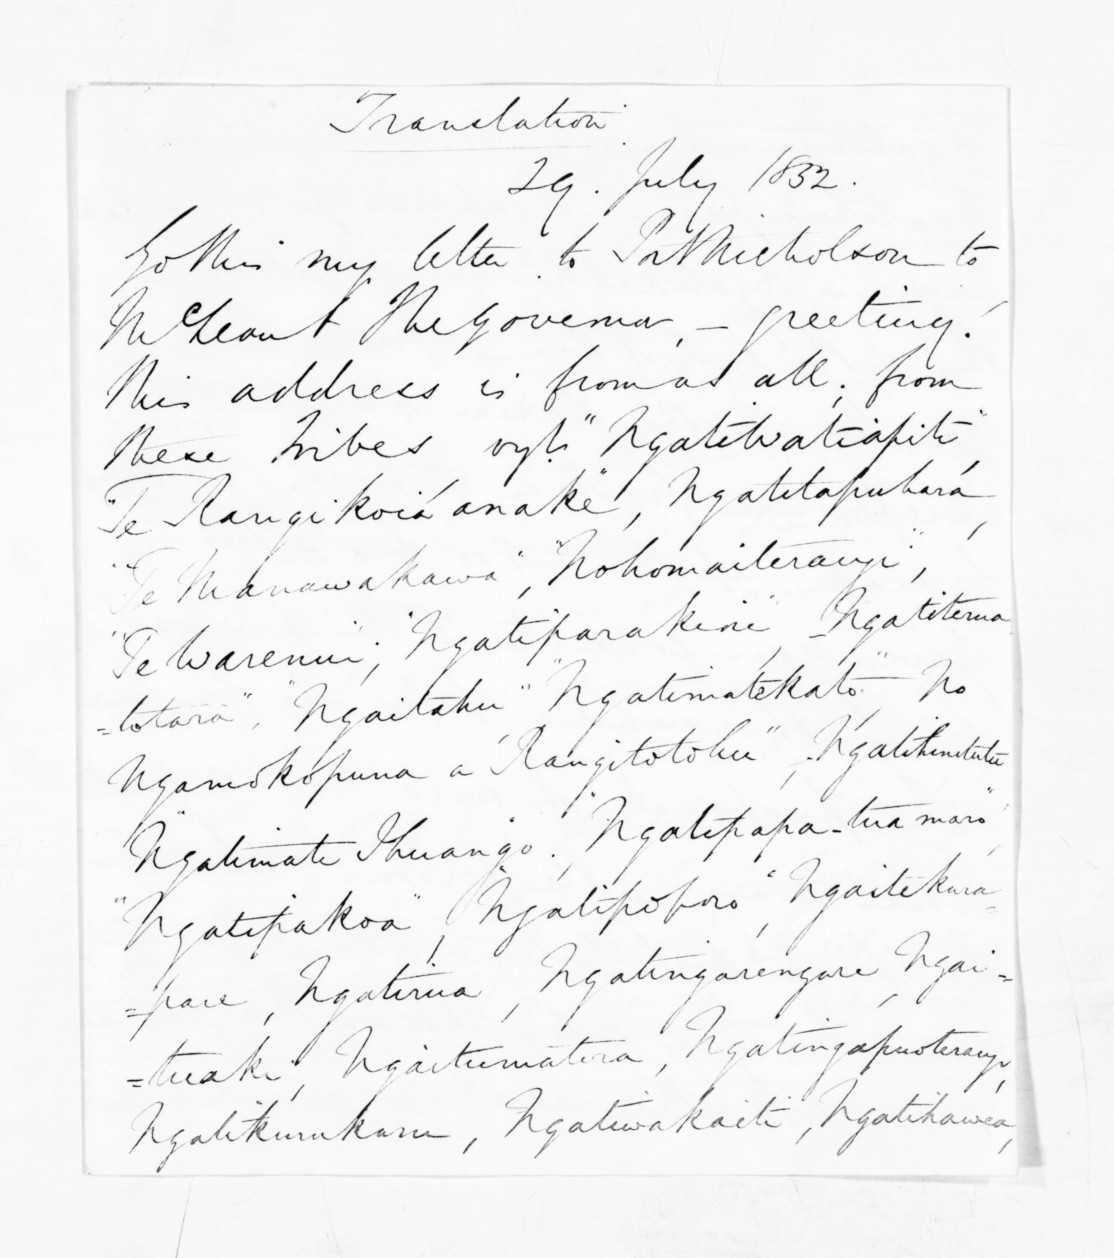 Translation
29. July 1832.
Go this my letter to Pat Nicholson to
McLean & The Governor, – greeting!
This address is from us all, from
these tribes vizt. "Ngatiwatiapiti",
"Te Rangikoiáanake", Ngatitapuhará,
"Te Manawakawa", "Nohomaiterangi",
"Te Warenui", "Ngatiparakini", Ngatiterua
=totara", "Ngaitahu" "Ngatimatekato" – No
Ngamokopuna a Rangitotohu", Ngatihinetutu
"Ngatimate Ihuango, "Ngatipapa-tua maro",
"Ngatipakoa", Ngatipoporo", "Ngaitekura=
=pare, Ngatirua, Ngatingarengare, Ngai=
=tuaki, Ngaitumatira, Ngatingapuoterangi,
Ngatikurukuru, Ngatiwakaiti, Ngatihawea,